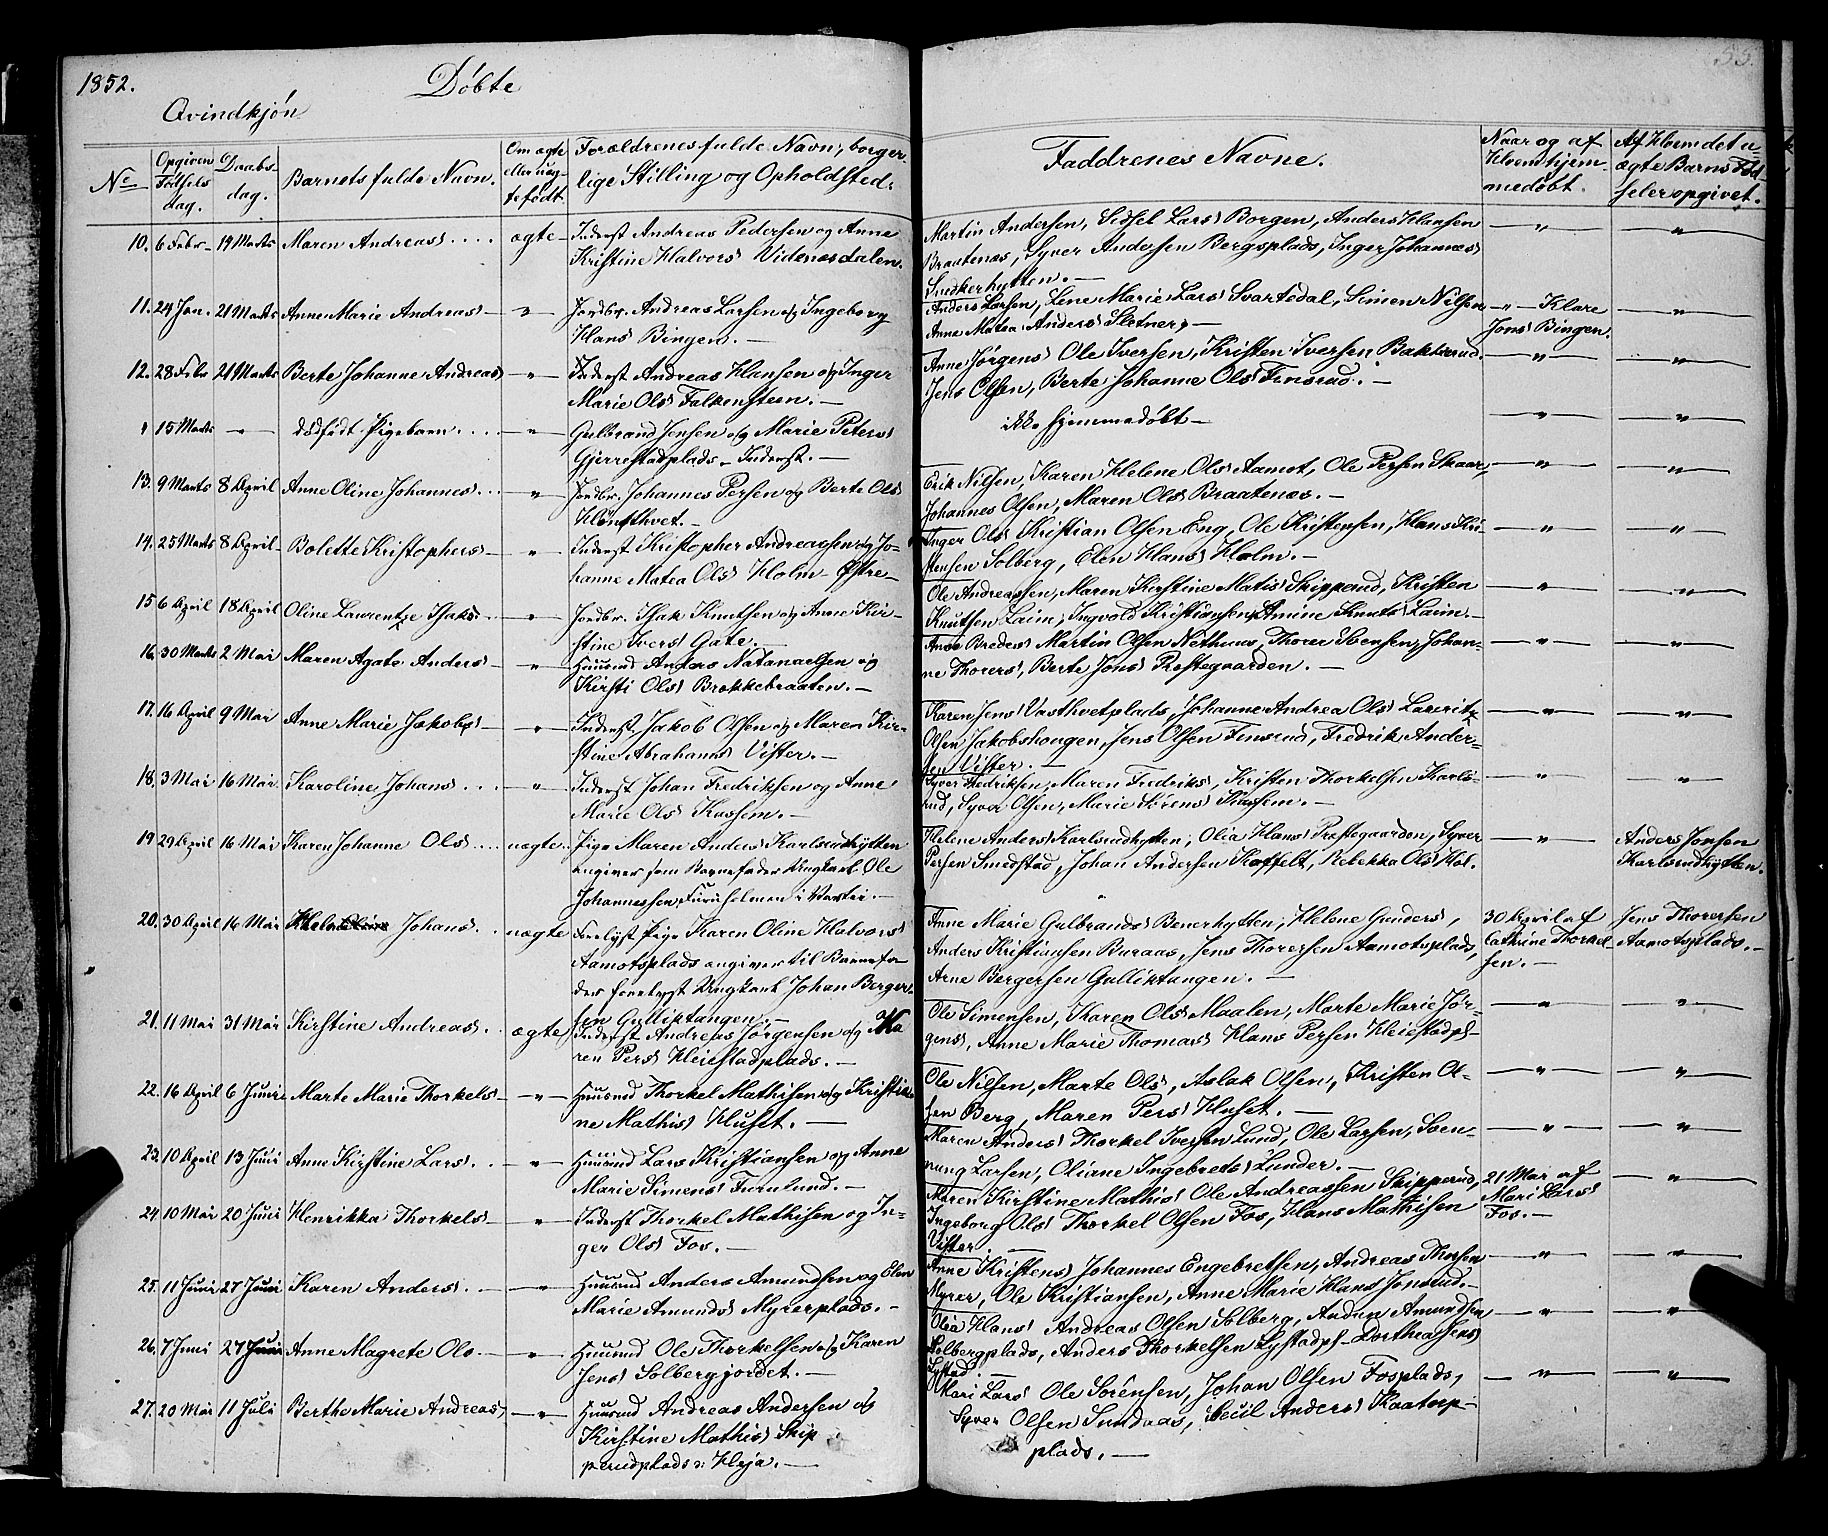 1852.
Døbte
Qvindkjøn
No
Opgiven Fødselsdag.
Daabsdag.
Barnets fulde Navn.
Om ægte eller uægte født.
Forældrenes fulde Navn, borgerlige Stilling og Opholdsted.
10. 6 Febr. 14 Marts Maren Andreas ægte Inderst Andreas Pedersen og Anne
Kristine Halvors Videnæsdalen.
11. 24 Jan. 21 Marts Anne Marie Andreas " Jordbr. Andreas Larsen og Ingeborg
Hans Bingen.
12. 28 Febr 21 Marts Berte Johanne Andreas " Inderst Andreas Hansen og Inger
Marie Ols Falkensteen.
" 15 Marts dødfødt Pigebarn " Gulbrand Jensen og Marie Peters
Gjerrestadplads. Inderst.
13. 9 Marts 8 April Anne Oline Johannes " Jordbr. Johannes Persen og Berte Ols
Hønsthvet.
14. 25 Marts 8 April Bolette Kristophers " Inderst Kristopher Andreassen og Jo-
hanne Matea Ols Holm Østre
15 6 April 18 April Oline Laurentze Isaks " Jordbr. Isak Knutsen og Anne Kir-
stine Ivers Gate.
16. 30 Marts 2 Mai Maren Agate Anders " Huusmd Anders Natanaelsen og
Kirsti Ols Brækkebraaten.
17. 16 April 9 Mai Anne Marie Jakobs " Inderst Jakob Olsen og Maren Kir-
stine Abrahams Vister.
18. 3 Mai 16 Mai Karoline Johans " Inderst Johan Fredriksen og Anne
Marie Ols Kaassem.
19 29 April 16 Mai Karen Johanne Ols uægte Pige Maren Anders Karlsrudhytten
angiver som Barnefader Ungkarl Ole
Johannessen Furuholmen i Varteig.
20. 30 April 16 Mai Johans uægte Forelyst Pige Karen Oline Halvors
Aamotsplads angiver til Barnefa-
der forelyst Ungkarl Johan Berger-
sen Gulliktangen.
21. 11 Mai 31 Mai Kirstine Andreas ægte Inderst Andreas Jørgensen og Ma
ren Pers Heiestadplads.
22. 16 April 6 Juni Marte Marie Thorkels " Huusmd Thorkel Mathisen og Kristia
ne Mathis Huset.
23. 10 April 13 Juni Anne Kirstine Lars " Huusmd Lars Kristiansen og Anne
Marie Simens Furulund.
24 10 Mai 20 Juni Henrikka Thorkels " Inderst Thorkel Mathisen og In-
ger Ols Fos.
25. 11 Juni 27 Juni Karen Anders " Huusmd Anders Amundsen og Elen
Marie Amunds Myrerplads.
26. 7 Juni 27 Juni Anne Magrete Ols " Huusmd Ole Thorkelsen og Karen
Jens Solbergjordet.
27. 20 Mai 11 Juli Berthe Marie Andreas " Huusmd Andreas Andersen og
Kirstine Mathis Skip
perudplads i Heja.
55.
Faddrenes Navne.
Naar og af Hvem hjemmedøbt.
Af Hvem det uægte Barns Fødseler opgivet.
Martin Andersen, Sidsel Lars Borgen, Anders Hansen
Braatenæs, Syver Andersen Bergsplads, Inger Johannes
Snekkerhytten.
Anders Larsen, Lene Marie Lars Svartedal, Simen Nilsen " Klare
Anne Matea Anders Sletner, Jons Bingen.
Anne Jørgens Ole Iversen, Kristen Iversen Bakkerud.
Jens Olsen, Berte Johanne Ols Finsrud.
ikke hjemmedøbt
Erik Nilsen, Karen Helene Ols Aamot, Ole Persen Skaar,
Johannes Olsen, Maren Ols Braatenæs.
Inger Ols Kristian Olsen Eng, Ole Kristensen, Hans Kri-
stensen Solberg, Elen Hans Holm.
Ole Andreassen, Maren Kirstine Matis Skipperud, Kristen
Knutsen Laim, Ingvold Kristiansen, Amine Knuts Laim.
Anne Breders Martin Olsen Næthnæs, Thorer Svensen, Johan-
ne Thorers, Berte Jons Præstegaarden.
Karen Jens Vasthvetplads, Johanne Andrea Ols Lauritz
Olsen Jakobshougen, Jens Olsen Finsrud, Fredrik Ander-
sen Vister.
Syver Fredriksen, Maren Fredriks, Kristen Thorkelsen Karls-
rud, Syver Olsen, Marie Sørens Kaassene.
Helene Anders Karlsrudhytten, Olia Hans Præstegaarden, Syver Anders Jonsen
Persen Smedstad, Johan Andersen Kaffelt, Rebekka Ols Hol. Karlsrudhytten.
Anne Marie Gulbrands Benerhytten, Helene Gunders, 30 April af Jens Thorersen
Anders Kristiansen Buraas, Jens Thoresen Aamotsplads, Cathrine Thorkel- Aamotsplads.
Arne Bergersen Gulliktangen. sen.
Ole Simensen, Karen Ols Maalen, Marte Marie Jør-
gens, Anne Marie Thomas Hans Persen Heiestadpl
Ole Nilsen, Marte Ols, Aslak Olsen, Kristen Ol-
sen Berg, Maren Pers Huset.
Maren Anders Thorkel Iversen Lund, Ole Larsen, Sven-
nung Larsen, Oliane Ingebrets Lunder.
Maren Kirstine Mathis Ole Andreassen Skipperud, 21 Mai af
Ingeborg Ols Thorkel Olsen Fos, Hans Mathisen Mari Lars
Vister. Fos.
Anne Kristens Johannes Engebretsen, Andreas Thorsen
Myrer, Ole Kristiansen, Anne Marie Hans Jonsrud.
Olia Hans Andreas Olsen Solberg, Andrea Amundsen
Solbergplads, Anders Thorkelsen Lystadpl Dorthea Jens
Lystad.
Mari Lars Ole Sørensen, Johan Olsen Fosplads,
Syver Olsen Sundaas, Cecil Anders Kaatorp-
plads.